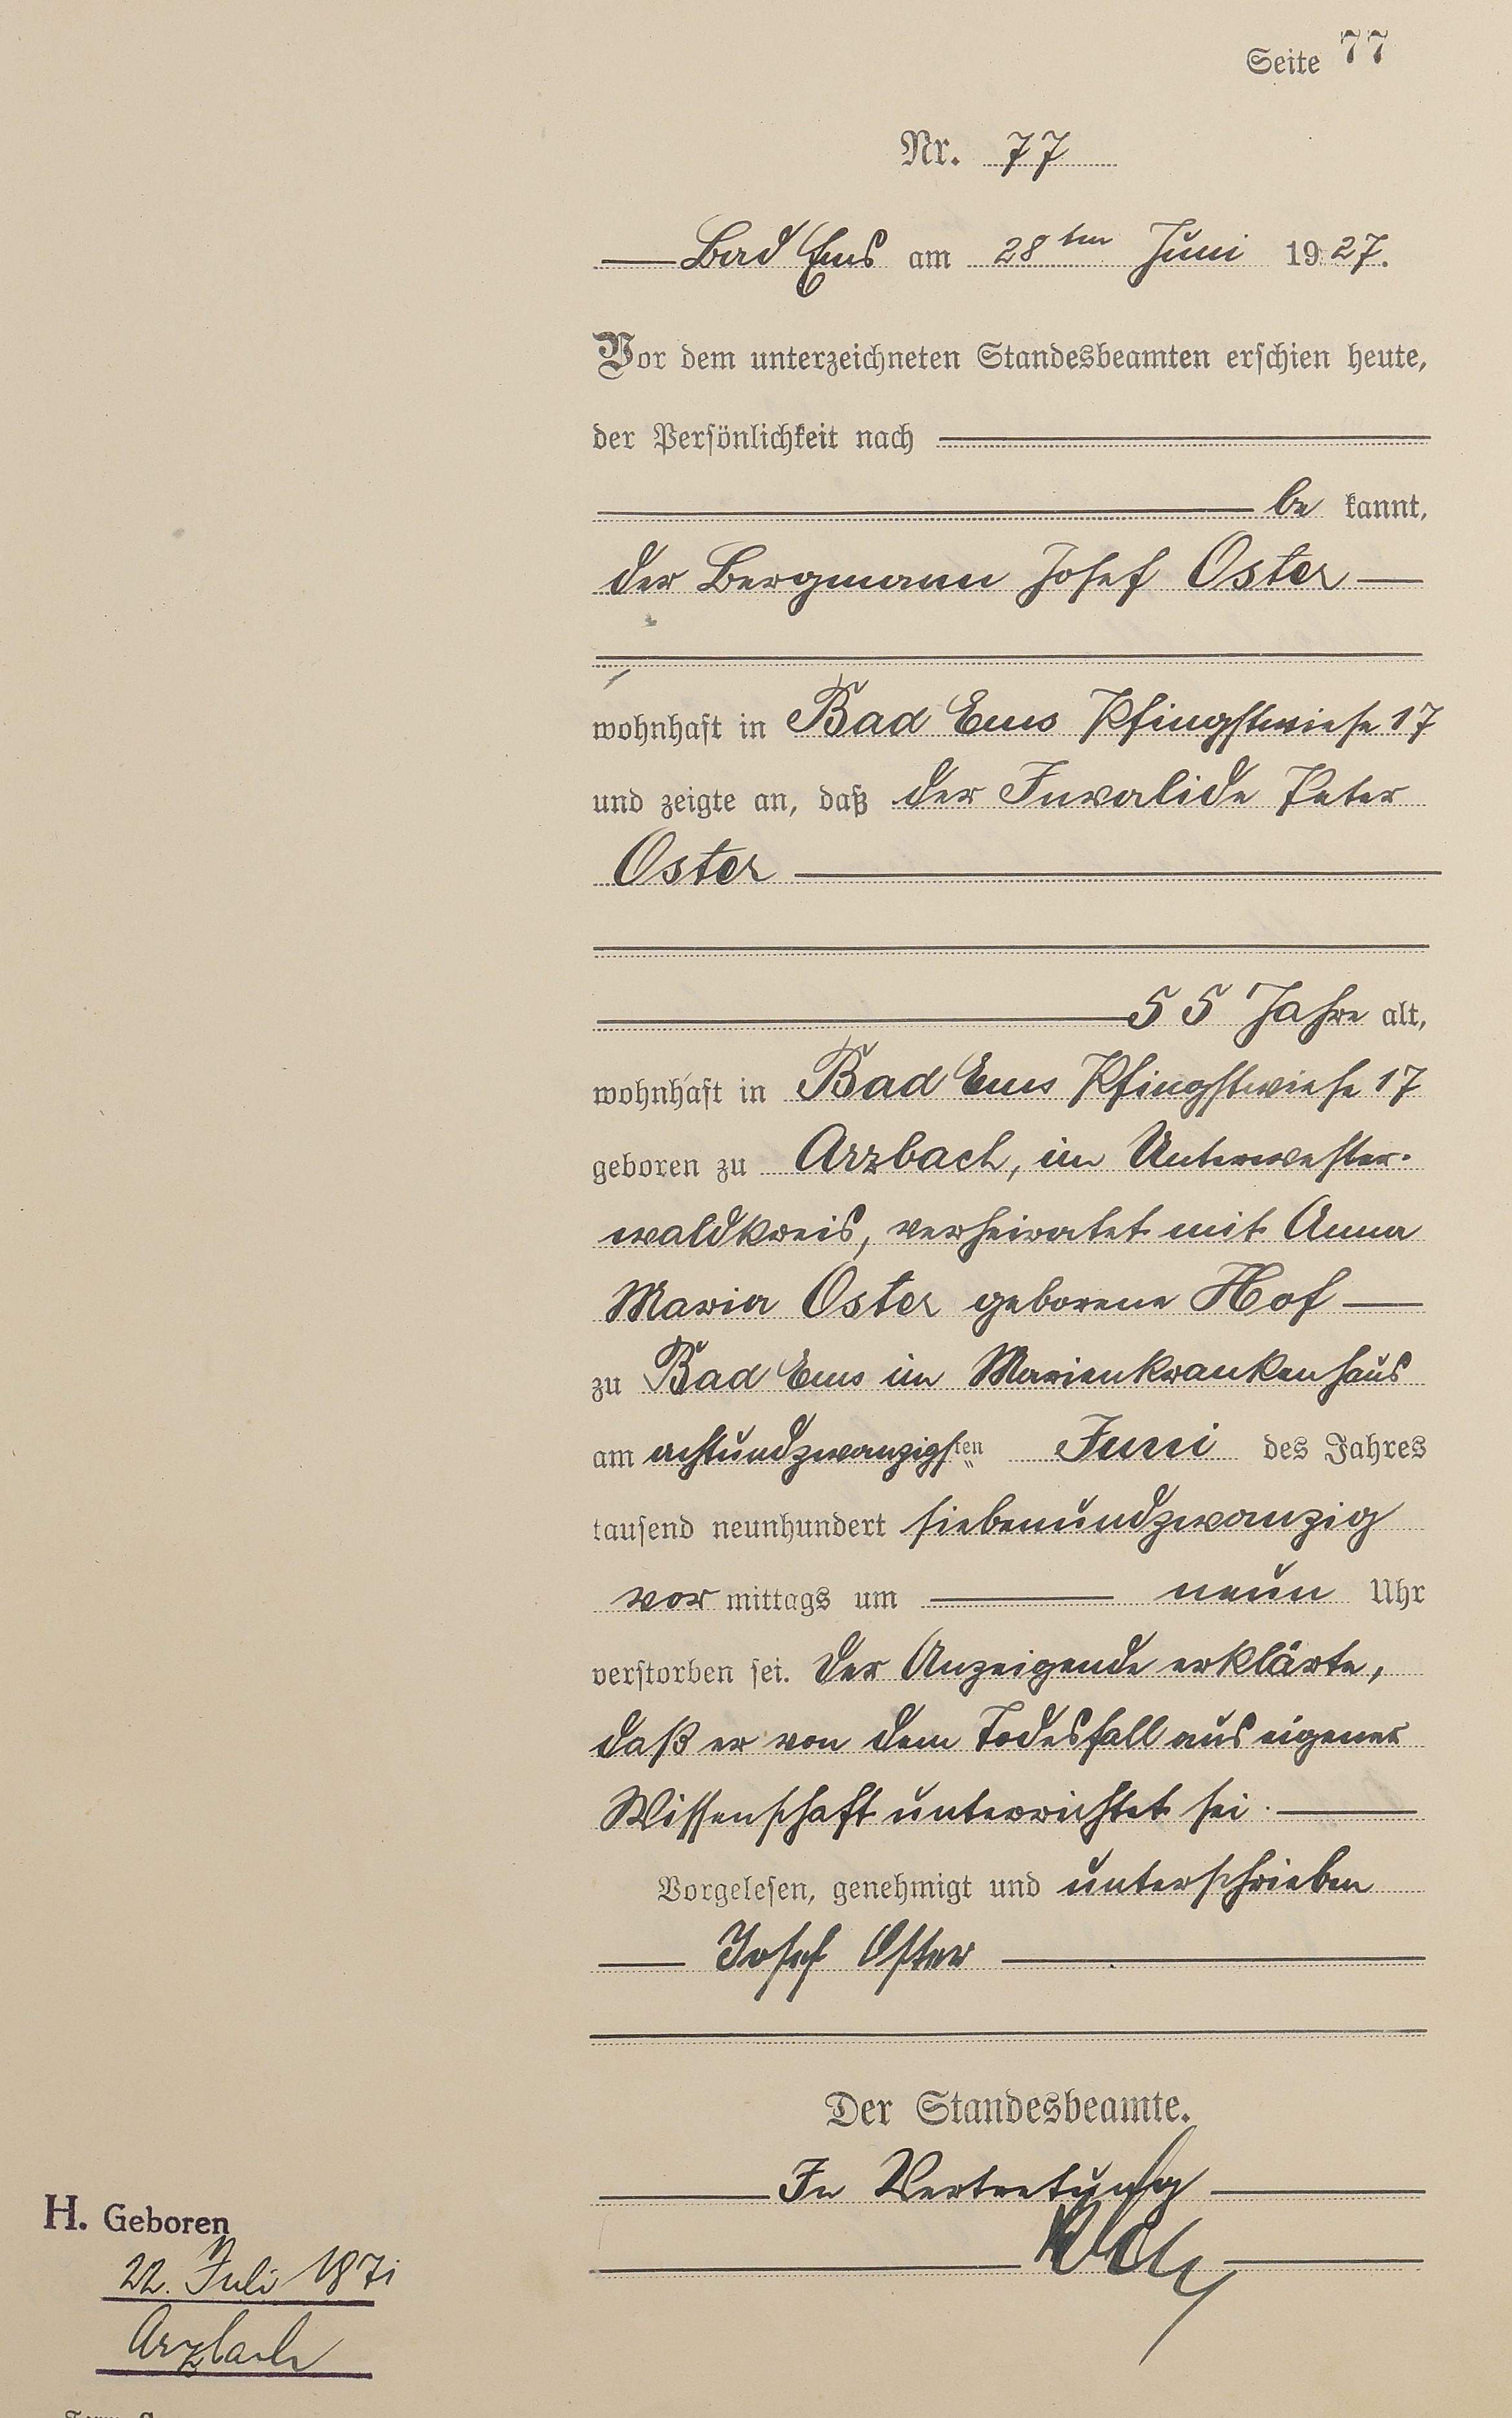 Seite 77
Nr. 77
Bad Ems am 28ten Juni 1927.
Vor dem unterzeichneten Standesbeamten erschien heute,
der Persönlichkeit nach
be kannt,
der Bergmann Josef Oster
wohnhaft in Bad Ems Pfingstwiese 17
und zeigte an, daß der Invalide Peter
Oster
55 Jahre alt,
wohnhaft in Bad Ems Pfingstwiese 17
geboren zu Arzbach, im Unterwester-
waldkreis, verheiratet mit Anna
Maria Oster geborene Hof
zu Bad Ems im Marienkrankenhaus
am achtundzwanzigsten Juni des Jahres
tausend neunhundert siebenundzwanzig
vor mittags um neun Uhr
verstorben sei. Der Anzeigende erklärte,
daß er von dem Todesfall aus eigener
Wissenschaft unterrichtet sei.
Vorgelesen, genehmigt und unterschrieben
Josef Oster
Der Standesbeamte.
In Vertretung
H. Geboren
22. Juli 1871
Arzbach